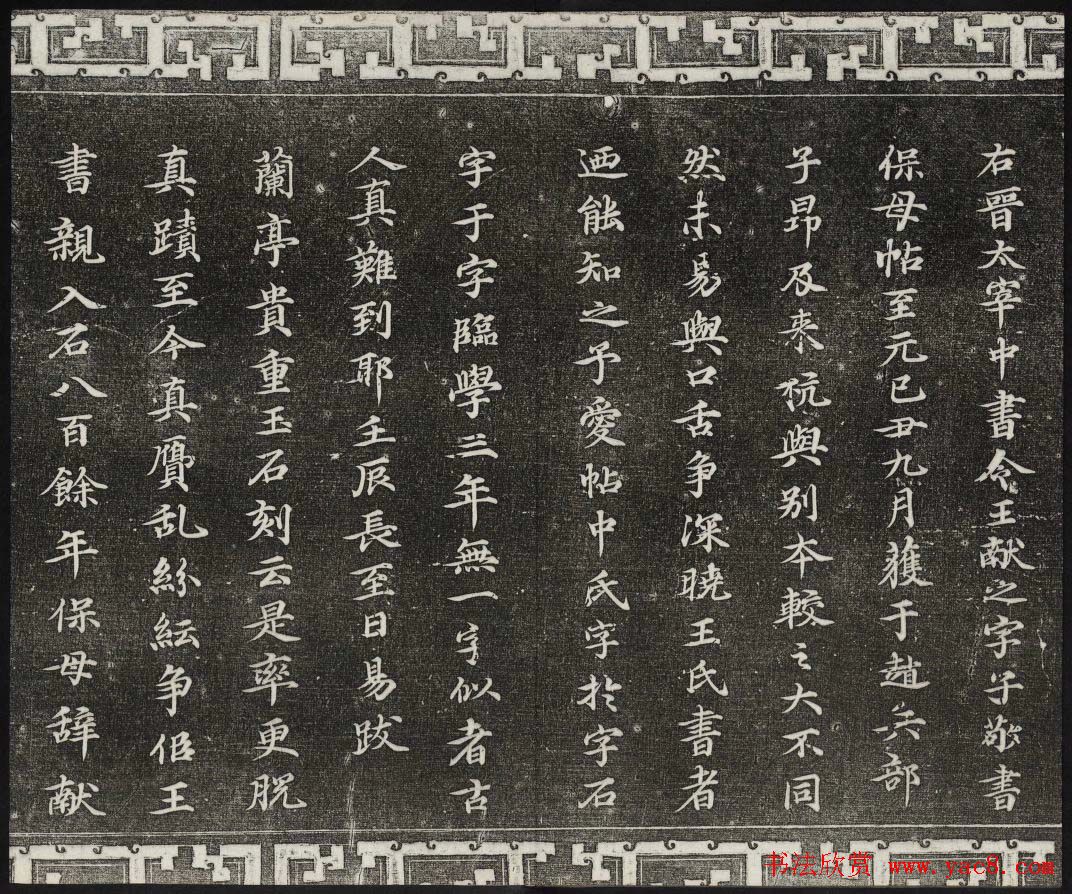 右晉太宰中書令王献之字子敬書
保母帖至元己丑九月獲于趙兵部
子昂及来杭與別本較之大不同
然未易與口舌争深曉王氏書者
廼能知之予愛帖中氏字於字石
字于字臨學三年無一字似者古
人真難到耶壬辰長至日易跋
蘭亭貴重玉石刻云是率更脫
真蹟至今真贋乱紛紜争但王
書親入石八百餘年保母辞献
书法欣赏 www.yac8.com